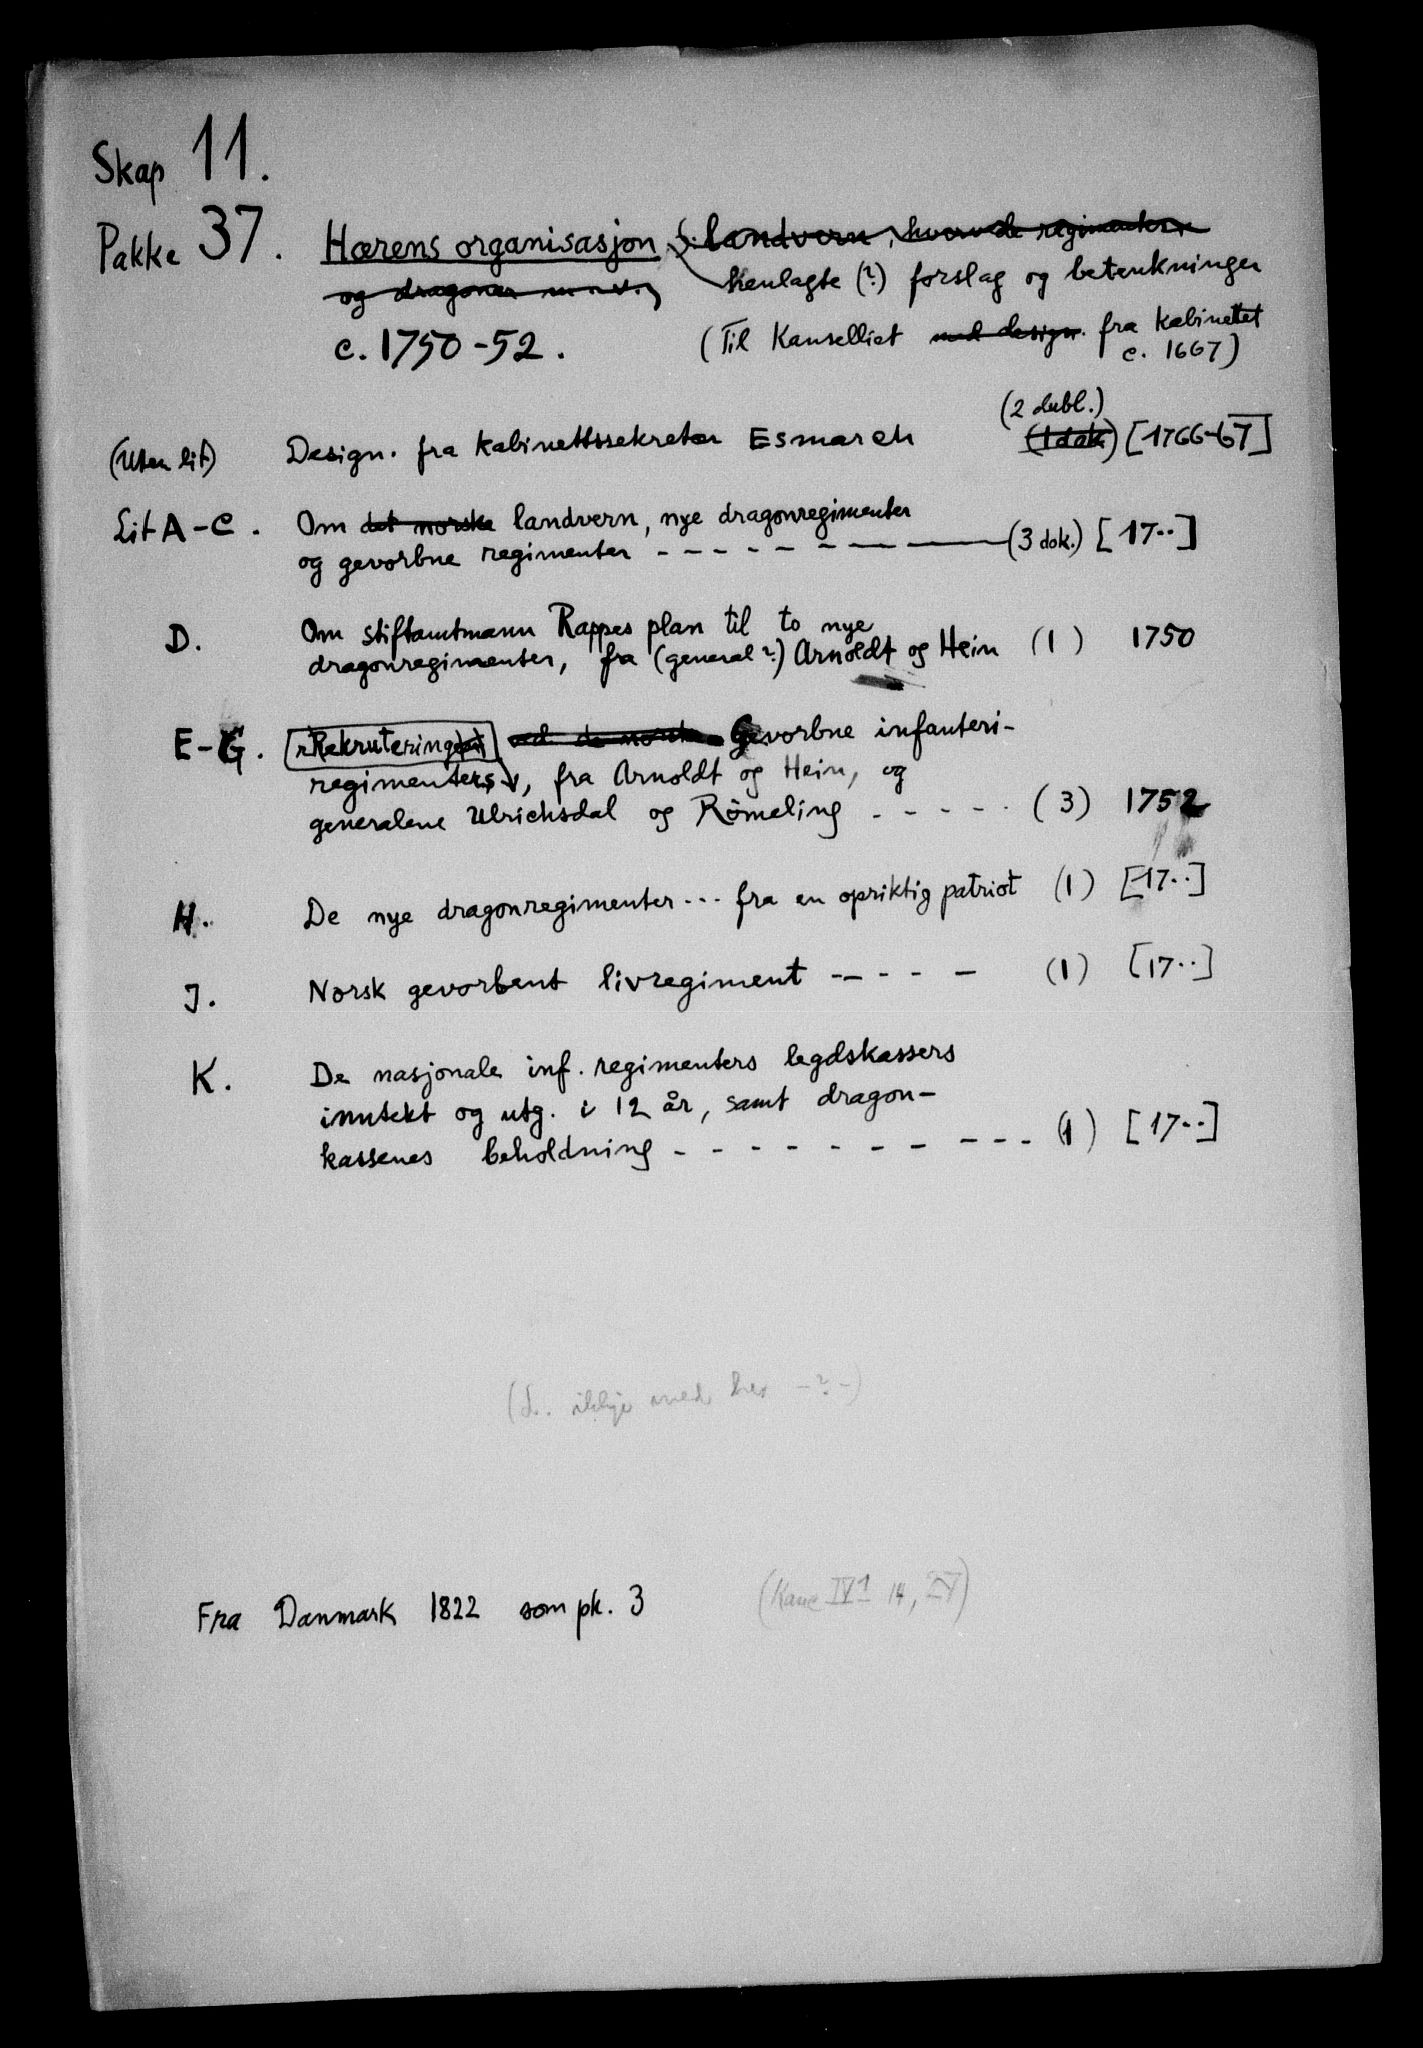 Skap 11.
Pakke 37. Hærens organisasjon : landvern, hverv de regimenter
og dragoner m.v. henlagte (?) forslag og betenkninger
c. 1750-52. (Til Kanselliet med design. fra kabinettet
c. 1667)
(2 dubl.)
(Uten lit) Design. fra kabinettssekretær Esmarch (1 dok) [1766-67]
Lit A-C. Om det norske landvern, nye dragonregimenter
og gevorbne regimenter - - - - - - - - (3 dok.) [17..]
D. Om stiftamtmann Rappes plan til to nye
dragonregimenter, fra (general?) Arnoldt og Hein (1) 1750
E-G. Rekrutering ved de norske Gevorbne infanteri-
regimenters, fra Arnoldt og Hein, og
generalene Ulrichsdal og Römeling - - - - - (3) 1752
H. De nye dragonregimenter... fra en opriktig patriot (1) [17..]
J. Norsk gevorbent livregiment - - - - - (1) [17..]
K. De nasjonale inf. regimenters legdskassers
inntekt og utg. i 12 år, samt dragon-
kassenes beholdning - - - - - - - - - - (1) [17..]
(L. ikkje med her -?-)
Fra Danmark 1822 som pk. 3 (Kanc IV 1 14,